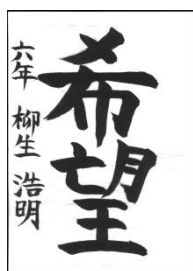 希望
六年 柳生 浩明